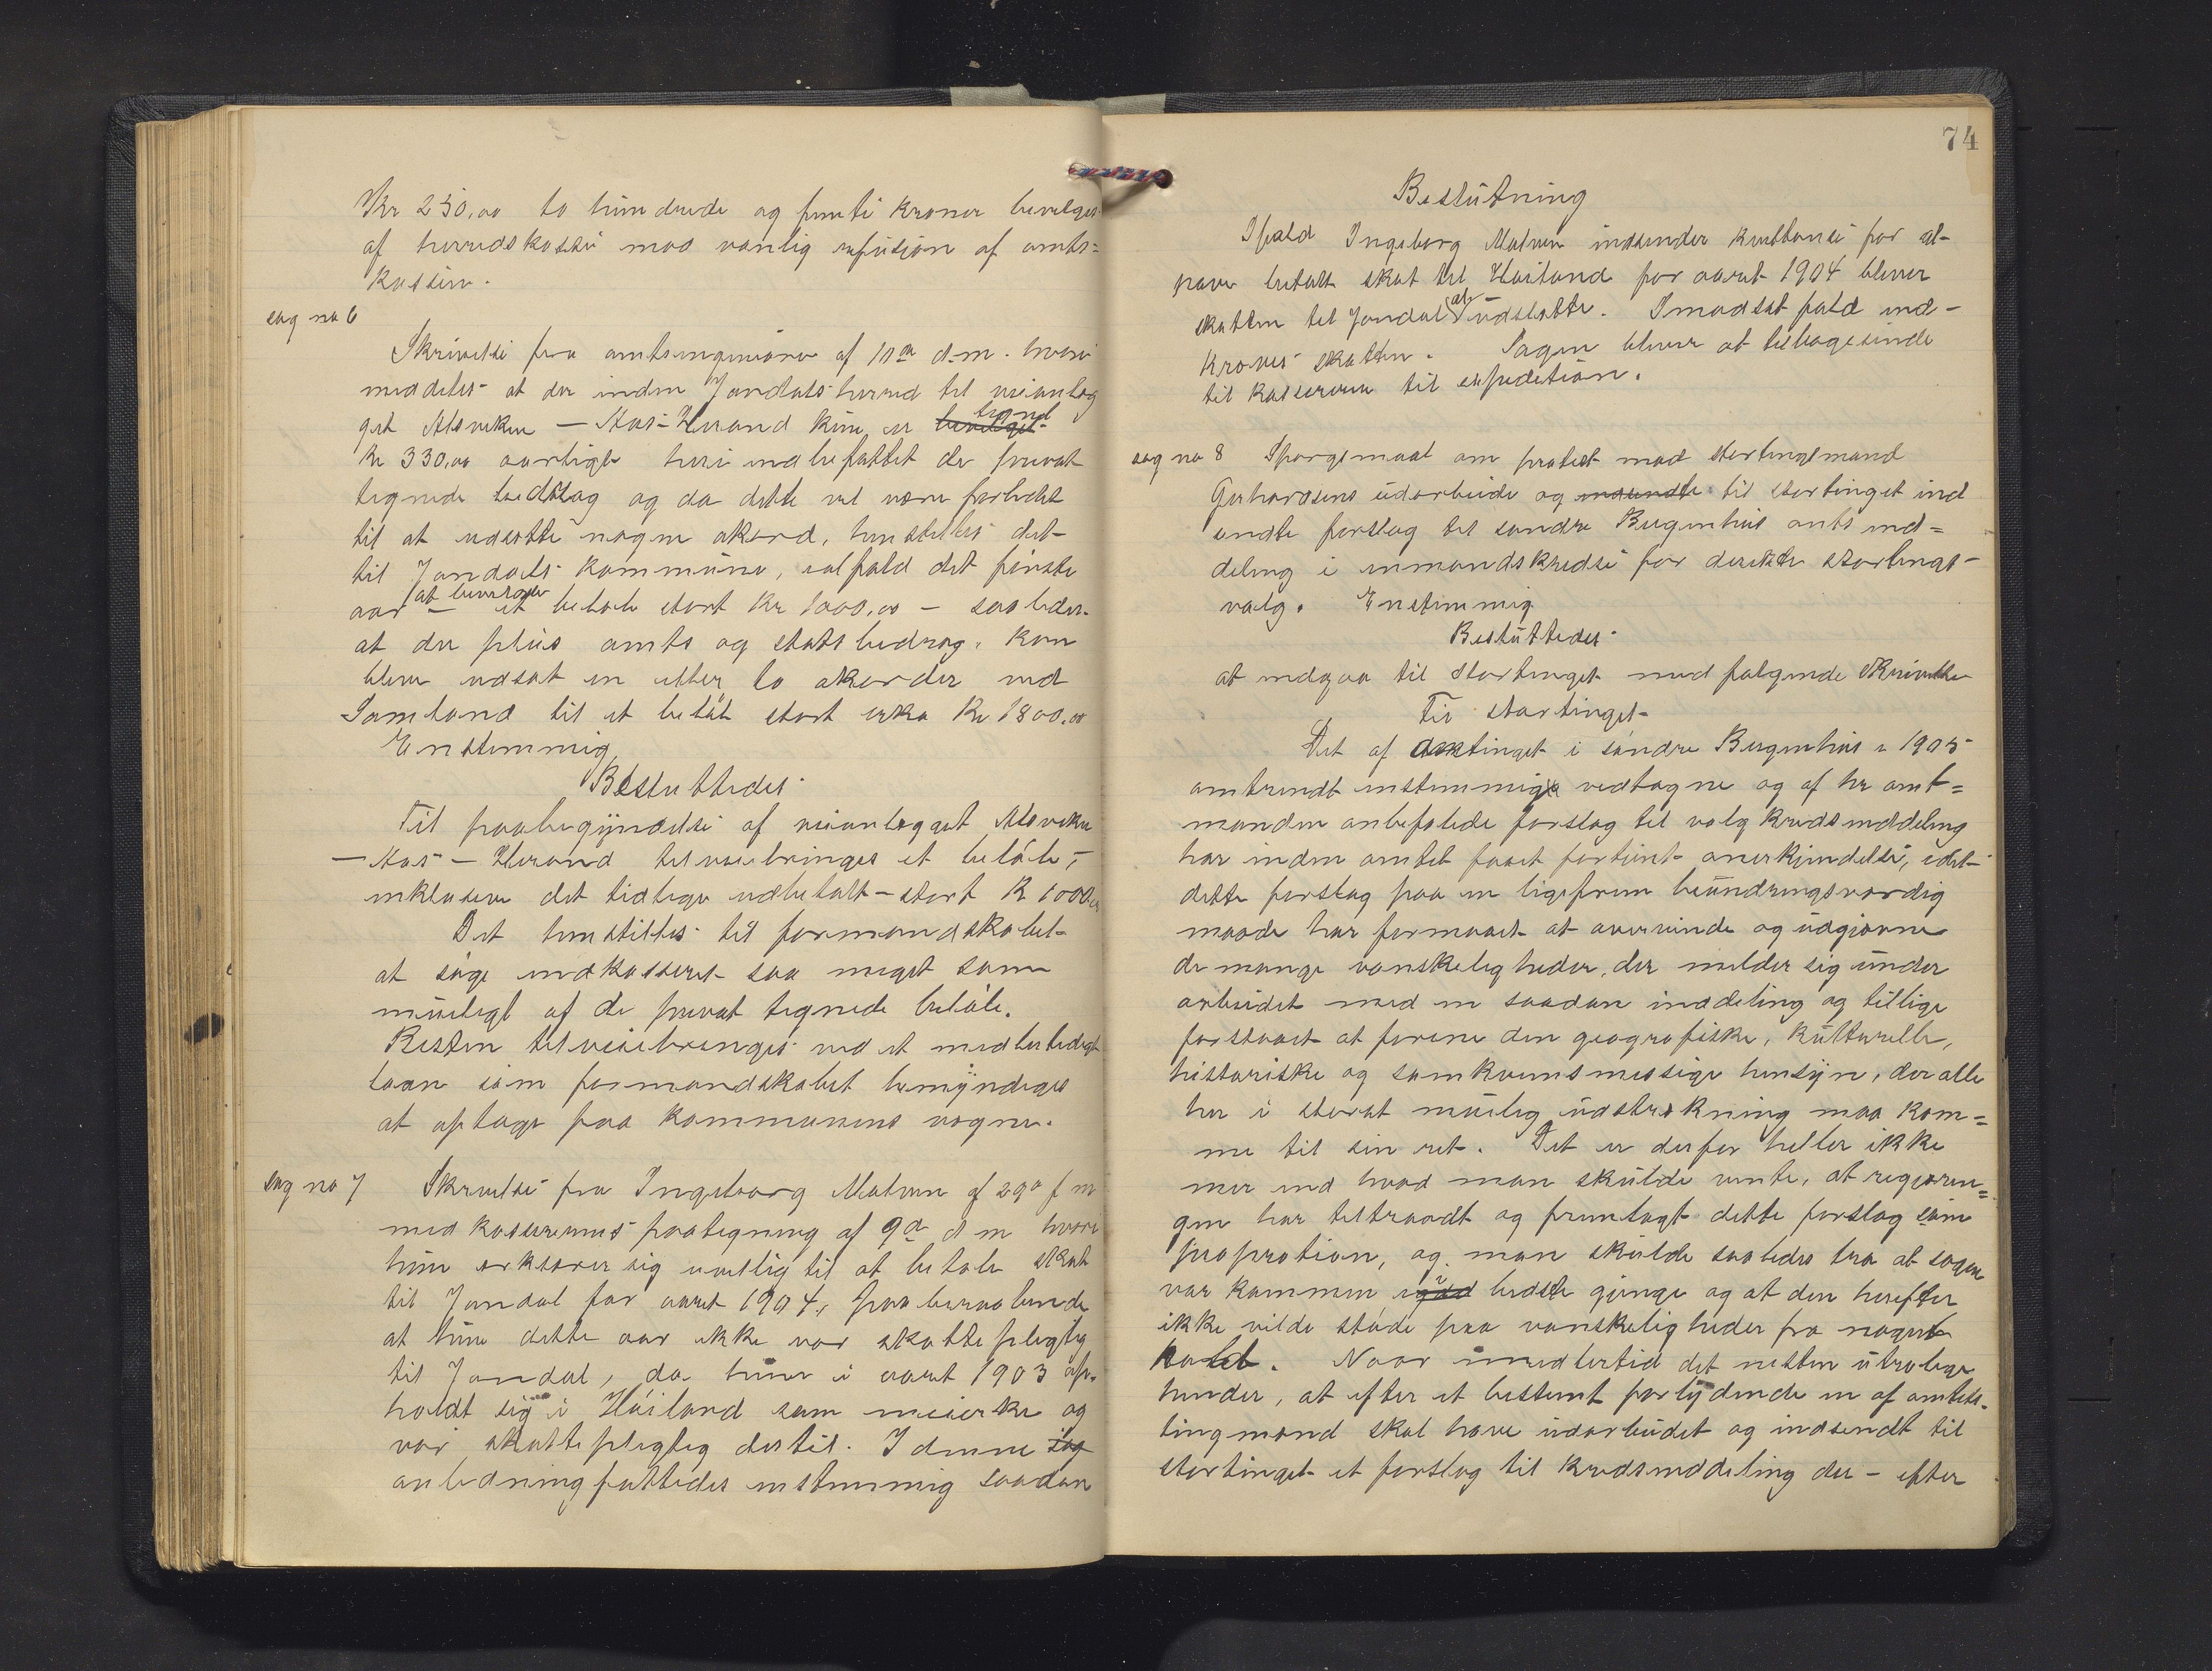 Kr 250,00 to hundrede og femti kroner bevilges
af herredskassen mod vanlig refusion af amts=
kassen.
sag no 6
Skrivelse fra amtsingeniøren af 10de d.m. hvori
meddeles at der inden Jondals herred til veianlæg
get Alsviken – Aas – Herand kun er bevilget tegnet
Kr 330,00 aarlige heri indbefattet de privat
tegnede bedrag og da dette vil være forlidet
til at udsætte nogen akord, henstilles det
til Jondals kommune, ialfald det første
aar – at bevirge et beløb stort Kr 1000,00 – saaledes
at der plus amts og statsbedrag, kan
blive udsat en eller to akorder ved
Samland til et beløb stort cirka Kr 1800,00
Enstemmig
Besluttedes
Til paabegyndelse af veianlægget Alsviken
– Aas – Herand tilveiebringes et beløb, –
inklusive det tidlige udbetalt – stort K 1000,00
Det henstilles til formandskabet
at søge indkasseret saa meget som
muligt af de privat tegnede beløb.
Resten tilveiebringes ved et midlertidigt
laan som formandskabet bemyndiges
at optage paa kommunens vegne.
sag no 7 Skrivelse fra Ingeborg Malven af 29de f m
med kassererens paategning af 9de d m hvori
hun erklærer sig uvillig til at betale skat
til Jondal for aaret 1904, paaberaabende
at hun dette aar ikke var skattepligtig
til Jondal, da hun i aaret 1903 op=
holdt sig i Høiland som meierske og
var skattepligtig dertil. I denne sag
anledning fattedes enstemmig saadan
74
Beslutning
Ifald Ingeborg Malven indsender kvittanse for at
have betalt skat til Høiland for aaret 1904 bliver
skatten til Jondal at udslette. I modsat fald ind-
kræves skatten. Sagen bliver at tilbagesende
til kassereren til expedition.
sag no 8 Spørgsmaal om protest mod stortingsmand
Gerhardsens udarbeide og indsendte til stortinget ind
sendte forslag til søndre Bergenhus amts ind=
deling i enmandskredse for direkte stortings-
valg. Enstemmig
Besluttedes
at indgaa til stortinget med følgende skrivelse
Til stortinget
Det af amtstinget i søndre Bergenhus i 1905
omtrendt enstemmige vedtagne og af hr amt=
manden anbefalede forslag til valgkredsinddeling
har inden amtet faaet fortjent anerkjendelse, idet
dette forslag paa en ligefrem beundringsværdig
maade har formaaet at overvinde og udgjævne
de mange vanskeligheder, der melder sig under
arbeidet med en saadan inddeling og tillige
forstaaet at forene den geografiske, kulturelle,
historiske og samkvemsmæssige hensyn, der alle
her i størst mulig udstrækning maa kom=
me til sin ret. Det er derfor heller ikke
mer end hvad man skulde vente, at regjerin=
gen har tiltraadt og fremlagt dette forslag som
proprotion, og man skulde saaledes tro at sagen
var kommen i god bedste gjenge og at den herefter
ikke vilde støde paa vanskeligheder fra noget
hold. Naar imidlertid det næsten utrolige
hænder, at efter et bestemt forlydende en af amtets
tingmænd skal have udarbeidet og indsendt til
stortinget et forslag til kredsinddeling der – efter